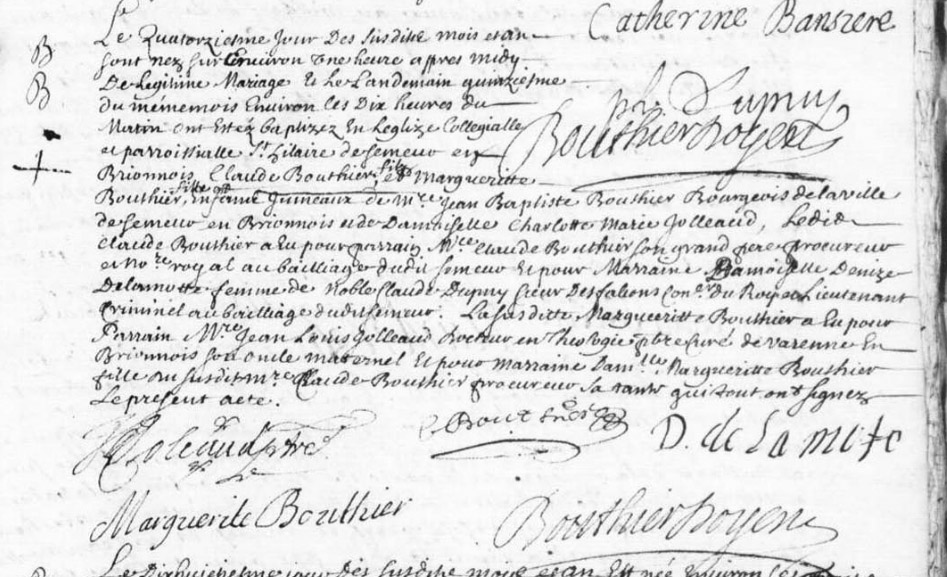 Catherine Banszere
Le Quatorziesme Jour Des susdits mois et an
sont nez sur Environ Une heure apres midy
De Legitime Mariage Et Le Landemain quinziesme
du même mois Environ les Dix heures du
Matin ont Estez baptizez En Leglize Collegialle
et parroissialle St. hilaire de semeur en
Brionnois, Claude Bouthier fils et Margueritte
Bouthier fille Enfants Jumeaux de mre Jean Baptiste Bouthier Bourgeois de la ville
de semeur en Brionnois et de Damoiselle Charlotte Marie Jolleaud, Ledit
Claude Bouthier a Eu pour parrain Mre Claude Bouthier son grand pere procureur
et nore royal au bailliage dudit semeur Et pour Marraine Damoiselle Denize
Delamotte femme de Noble Claude Dupuy sieur Des falcons Coner Du Roy et Lieutenant
Criminel au bailliage dudit semeur. La susditte Margueritte Bouthier a Eu pour
Parrain Mre Jean Louis Jolleaud Docteur en Theologie pbre Curé de varenne En
Brionnois son oncle maternel Et pour marraine Damlle Margueritte Bouthier
fille du susdit mre Claude Bouthier procureur sa tante qui tout ont signez
Le present acte.
Dupuy
Bouthier Doyen
B
B
Joleaud pbre
Bouthier
D. de La mote
Marguerite Bouthier
Bouthier Doyen
Le Dixhuictiesme jour Des susdits moys et an Est née Environ